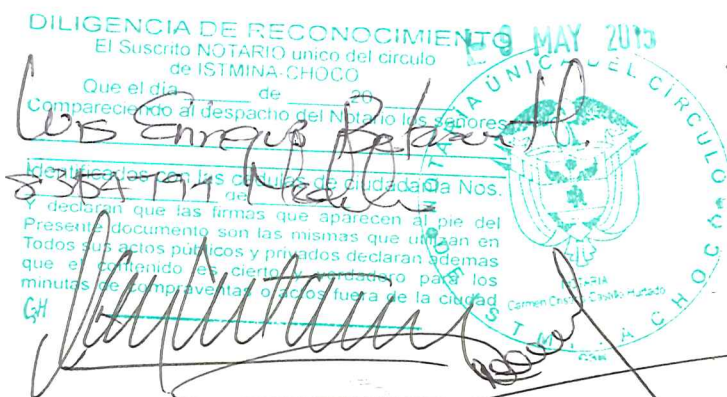 DILIGENCIA DE RECONOCIMIENTO
MAY 2013
El Suscrito NOTARIO unico del circulo
de ISTMINA-CHOCO
Que el dia de 20
Compareciendo al despacho del Notario los señores
Luis Enrique
Identificados con las cedulas de ciudadania Nos.
Medellin
de
Y declaran que las firmas que aparecen al pie del
Presente documento son las mismas que utilizan en
Todos sus actos publicos y privados declaran ademas
que el contenido es cierto y verdadero para los
minutas de compraventas o actos fuera de la ciudad
GH
NOTARIA UNICA DEL CIRCULO
DE ISTMINA CHOCO
NOTARIA
Carmen Castillo Hurtado